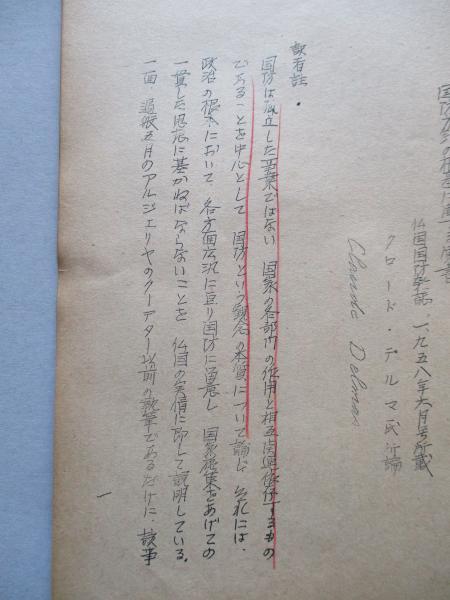 仏国国防雑誌、一九五八年六月号所載
クロード・デルマ氏所論
Claude Delmas
訳者註・
国防は孤立した事業ではない 国家の各部門の作用と相互関連依存するもの
であることを中心として 国防という観念の本質について論じ それには、
政治の根本において、各方面広汎に亘り国防に留意し 国家施策をあげての
一貫した思想に基かねばならないことを 仏国の実情に即して説明している。
一面 過般五月のアルジェリヤのクーデター以前の執筆であるだけに、